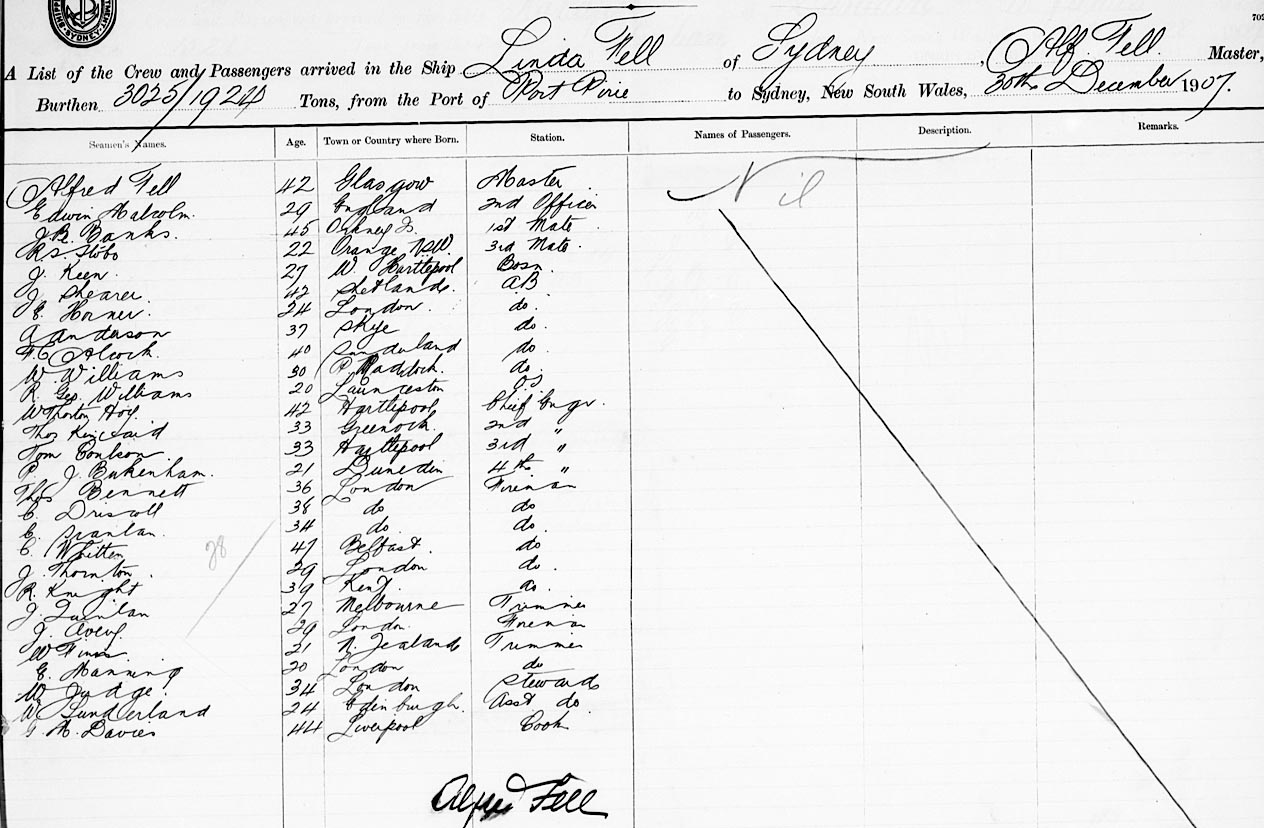 702
SYDNEY
A List of the Crew and Passengers arrived in the Ship Linda Fell of Sydney, Alf. Fell Master,
Burthen 3025/1924 Tons, from the Port of Port Pirie to Sydney, New South Wales, 30th December 1907.
Seamen's Names. Age. Town or Country where Born. Station. Names of Passengers. Description. Remarks.
Alfred Fell 42 Glasgow Master Nil
Edwin Malcolm. 29 England 2nd Officer
J.B. Banks. 45 Orkney Is. 1st Mate
R.S. Stobo 22 Orange NSW. 3rd Mate.
J. Keen. 27 W. Hartlepool Bosn.
J. Shearer. 42 Shetlands. AB
E. Horner. 24 London. do.
A Anderson 37 Skye do.
F.C. Alcock. 40 Sunderland do.
W. Williams 30 P. Maddock. do.
R. Geo. Williams 20 Launceston OS
W Thornton Hog. 42 Hartlepool Chief Engr.
Thos Kincaid 33 Greenock. 2nd "
Tom Coulson 33 Hartlepool 3rd "
P. J. Bukenham. 21 Dunedin 4th "
Thos Bennett 36 London Fireman
C. Driscoll 38 do do
C. Scanlan. 34 do. do.
C. Whitten 47 Belfast. do
J. Thornton. 29 London do.
R. Knight 39 Kent. do.
J. Quinlan 27 Melbourne Trimmer
J. Avery. 29 London. Fireman
W 21 N. Zealand Trimmer
E. Manning 20 London do
W. Judge. 34 London Steward
W Sunderland 24 Edinburgh. Asst do.
W. Davies 44 Liverpool Cook
28
Alfred Fell